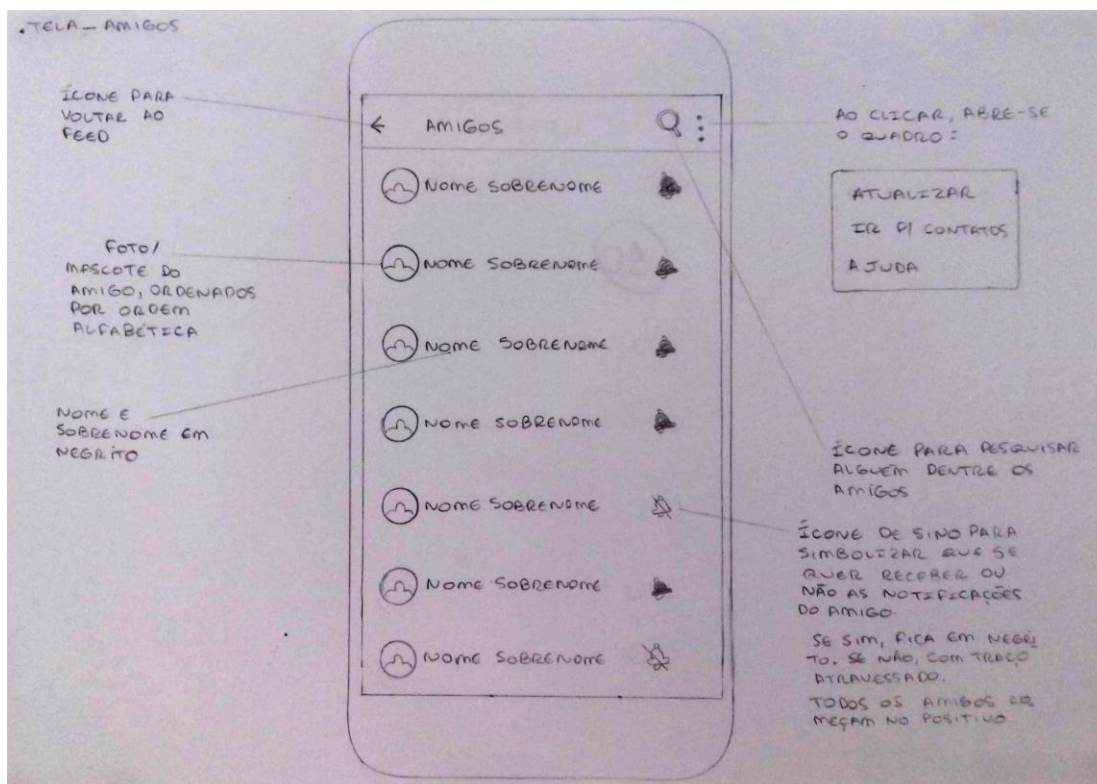 .TELA_AMIGOS
ÍCONE PARA
VOLTAR AO
FEED
FOTO/
MASCOTE DO
AMIGO, ORDENADOS
POR ORDEM
ALFABÉTICA
NOME E
SOBRENOME EM
NEGRITO
← AMIGOS
NOME SOBRENOME
NOME SOBRENOME
NOME SOBRENOME
NOME SOBRENOME
NOME SOBRENOME
NOME SOBRENOME
NOME SOBRENOME
AO CLICAR, ABRE-SE
O QUADRO:
ATUALIZAR
IR P/ CONTATOS
AJUDA
ÍCONE PARA PESQUISAR
ALGUÉM DENTRE OS
AMIGOS
ÍCONE DE SINO PARA
SIMBOLIZAR QUE SE
QUER RECEBER OU
NÃO AS NOTIFICAÇÕES
DO AMIGO
SE SIM, FICA EM NEGRI
TO. SE NÃO, COM TRAÇO
ATRAVESSADO.
TODOS OS AMIGOS CO
MEÇAM NO POSITIVO